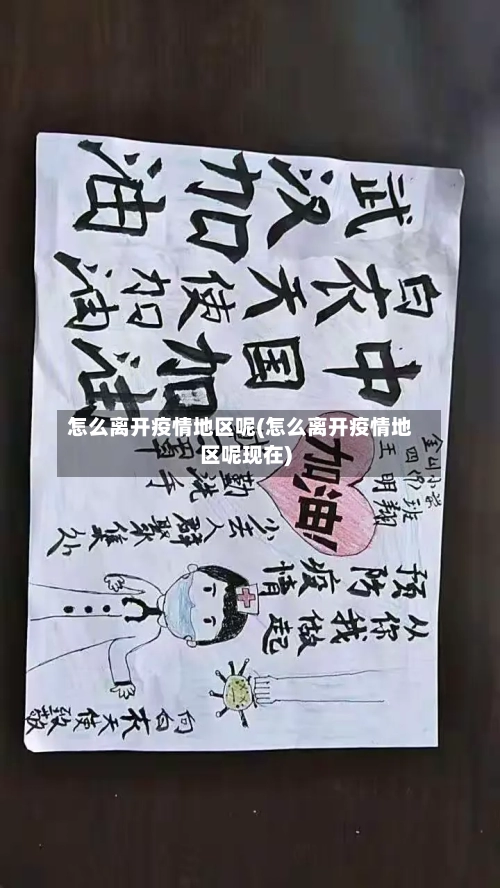 武汉加油
白衣天使加油
中国加油
怎么离开疫情地区呢(怎么离开疫情地
区呢现在)
加油!
金山小学
四 班
王明翔
罩
勤洗手
少去人群聚集处
预防疫情
从你我做起
向白衣天使致敬